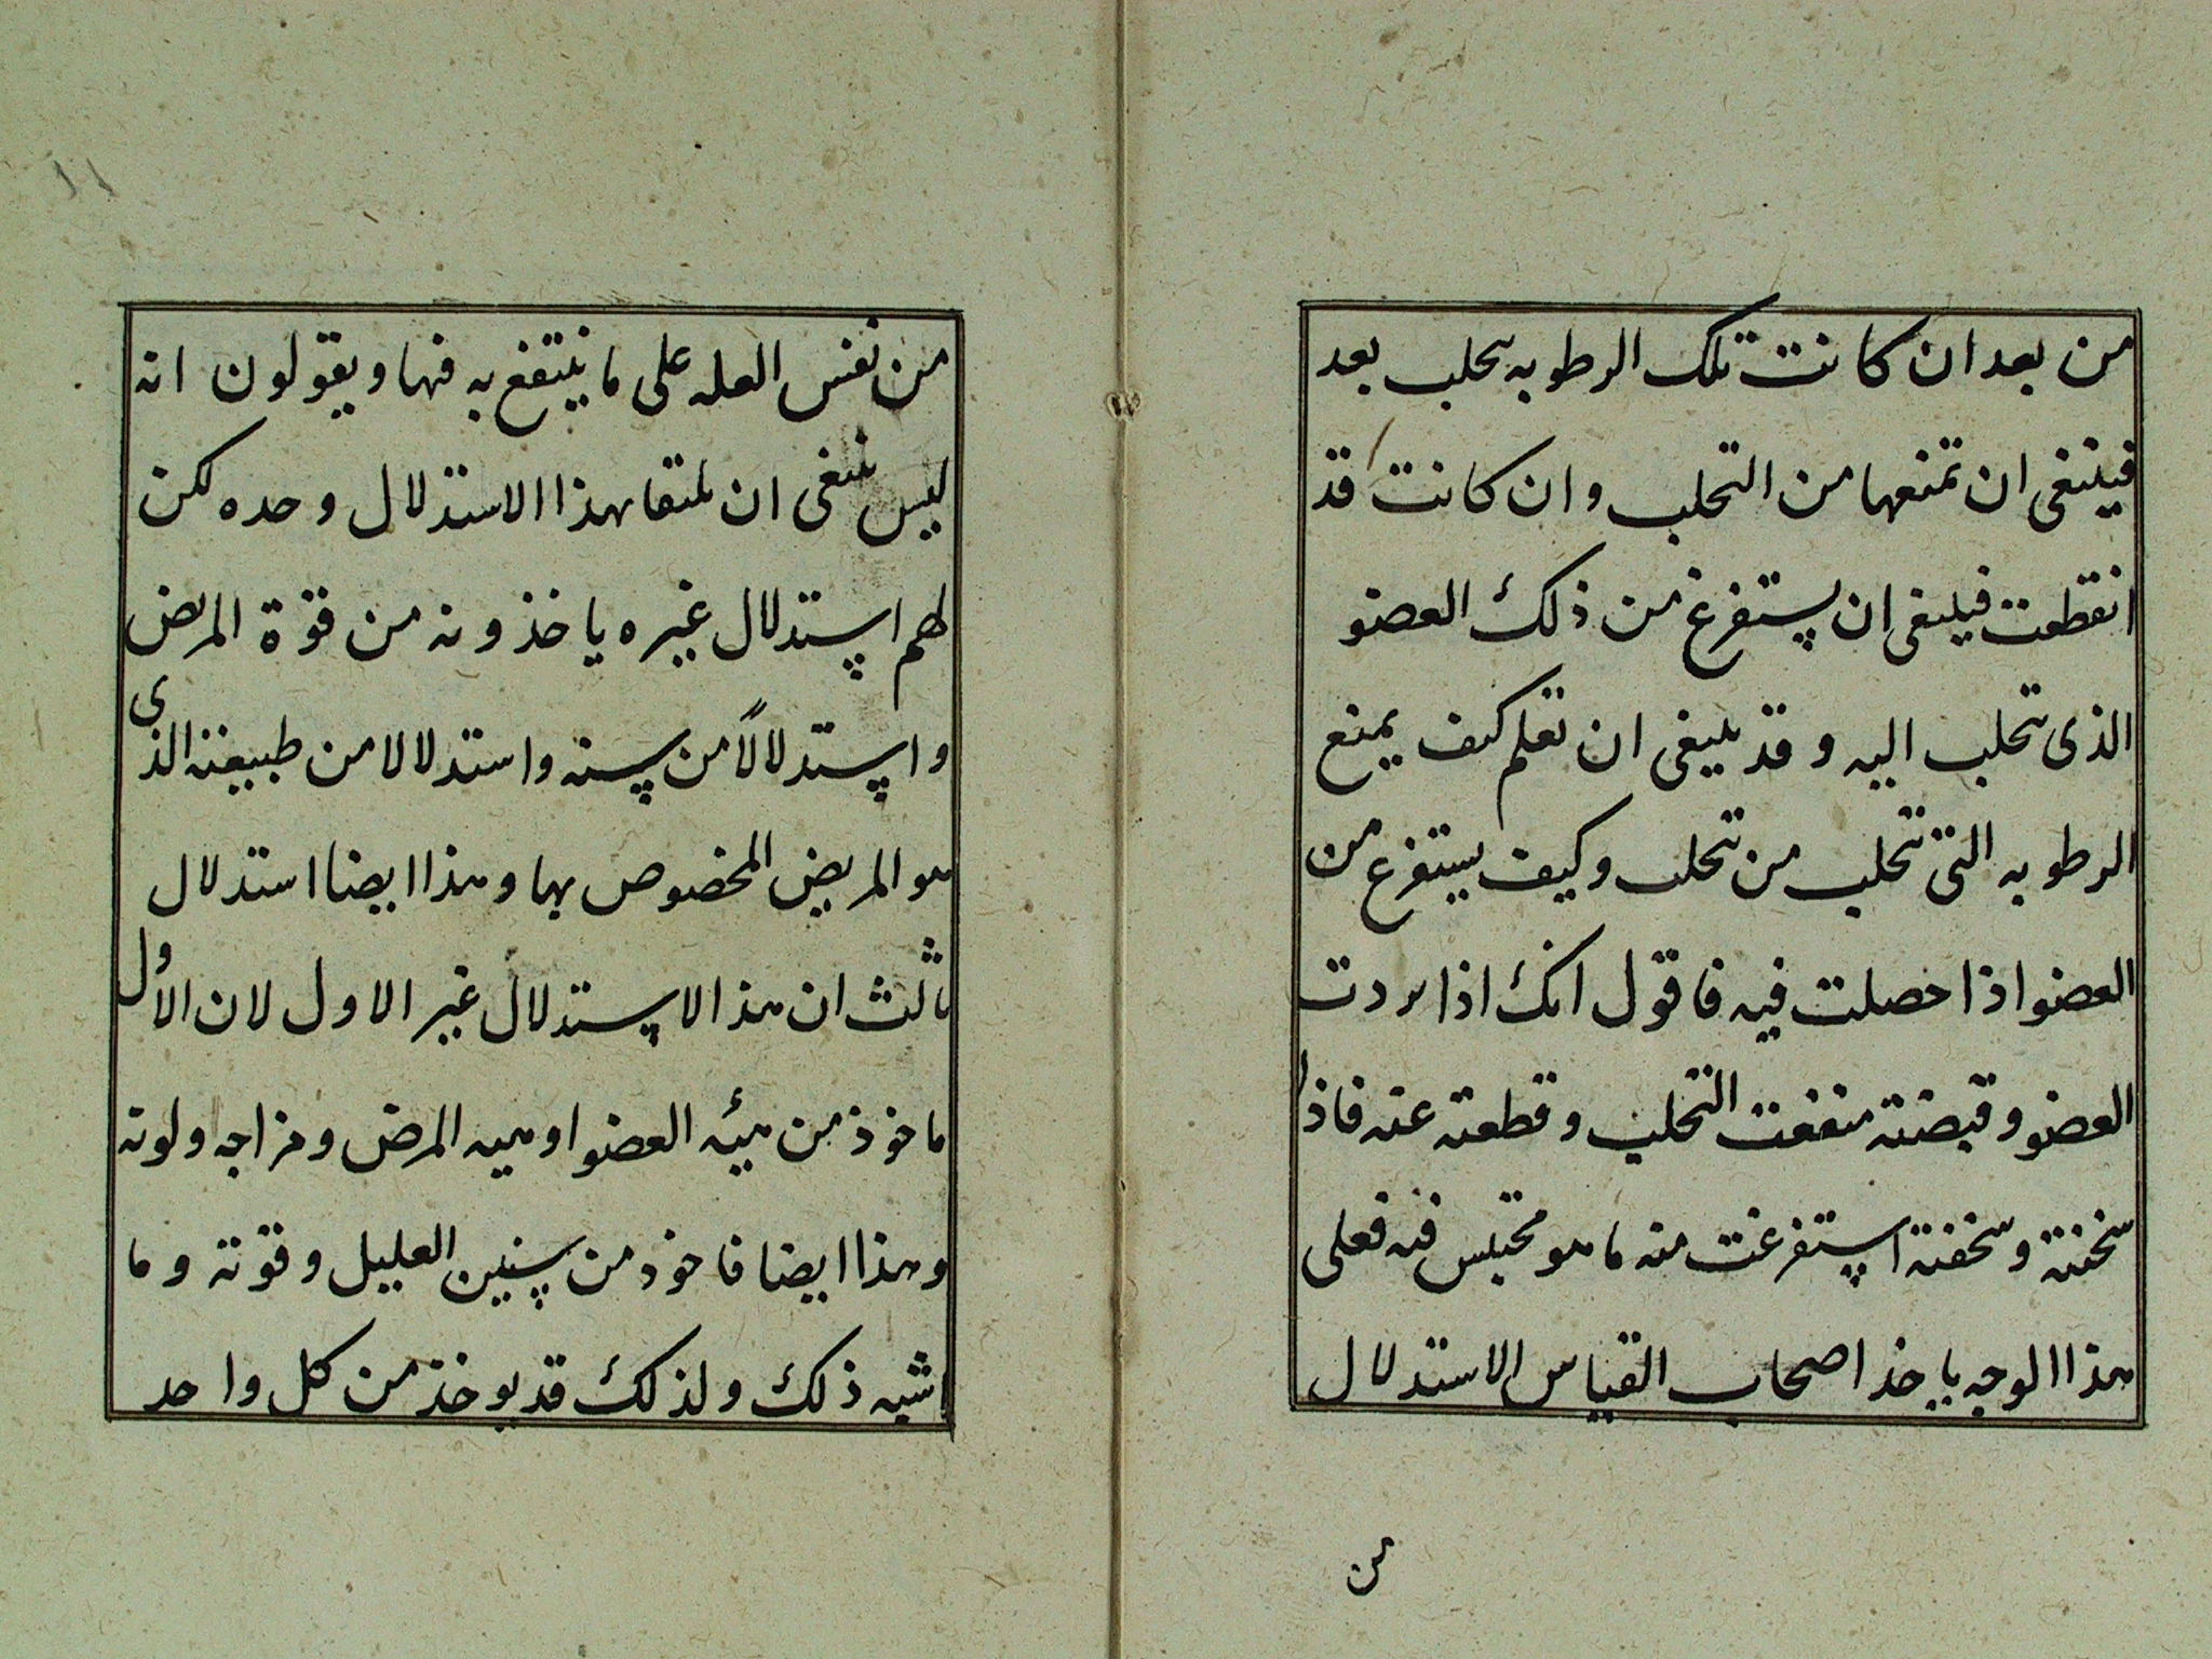 من بعد ان كانت تلك الرطوبه تحلب بعد
فينبغى ان تمنعها من التحلب وان كانت قد
انقطعت فينبغى ان يستفرغ من ذلك العضو
الذى تحلب اليه و قد ينبغى ان تعلم كيف يمنع
الرطوبه التى تتحلب من تتحلب وكيف يستفرغ من
العضو اذا حصلت فيه فاقول انك اذا بردت
العضو و قبضته منعت التحلب و قطعته عنه فاذا
سخنته و سخفته استفرغت منه ما هو محتبس فيه فعلى
هذا الوجه ياخذ اصحاب القياس الاستدلال
من
من نفس العله على ما ينتفع به فيها و يقولون انه
ليس ينبغى ان بهذا الاستدلال وحده لكن
لهم استدلال غيره ياخذونه من قوة المريض
و استدلالاً من سنه و استدلالا من طبيعته الذى
هو المريض المخصوص بها و هذا ايضا استدلال
ثالث ان هذا الاستدلال غير الاول لان الاول
ماخوذ من هيئه العضو او هيه المرض و مزاجه و لونه
و هذا ايضا فاخوذ من سنين العليل و قوته و ما
اشبه ذلك و لذلك قد يوخذ من كل واحد